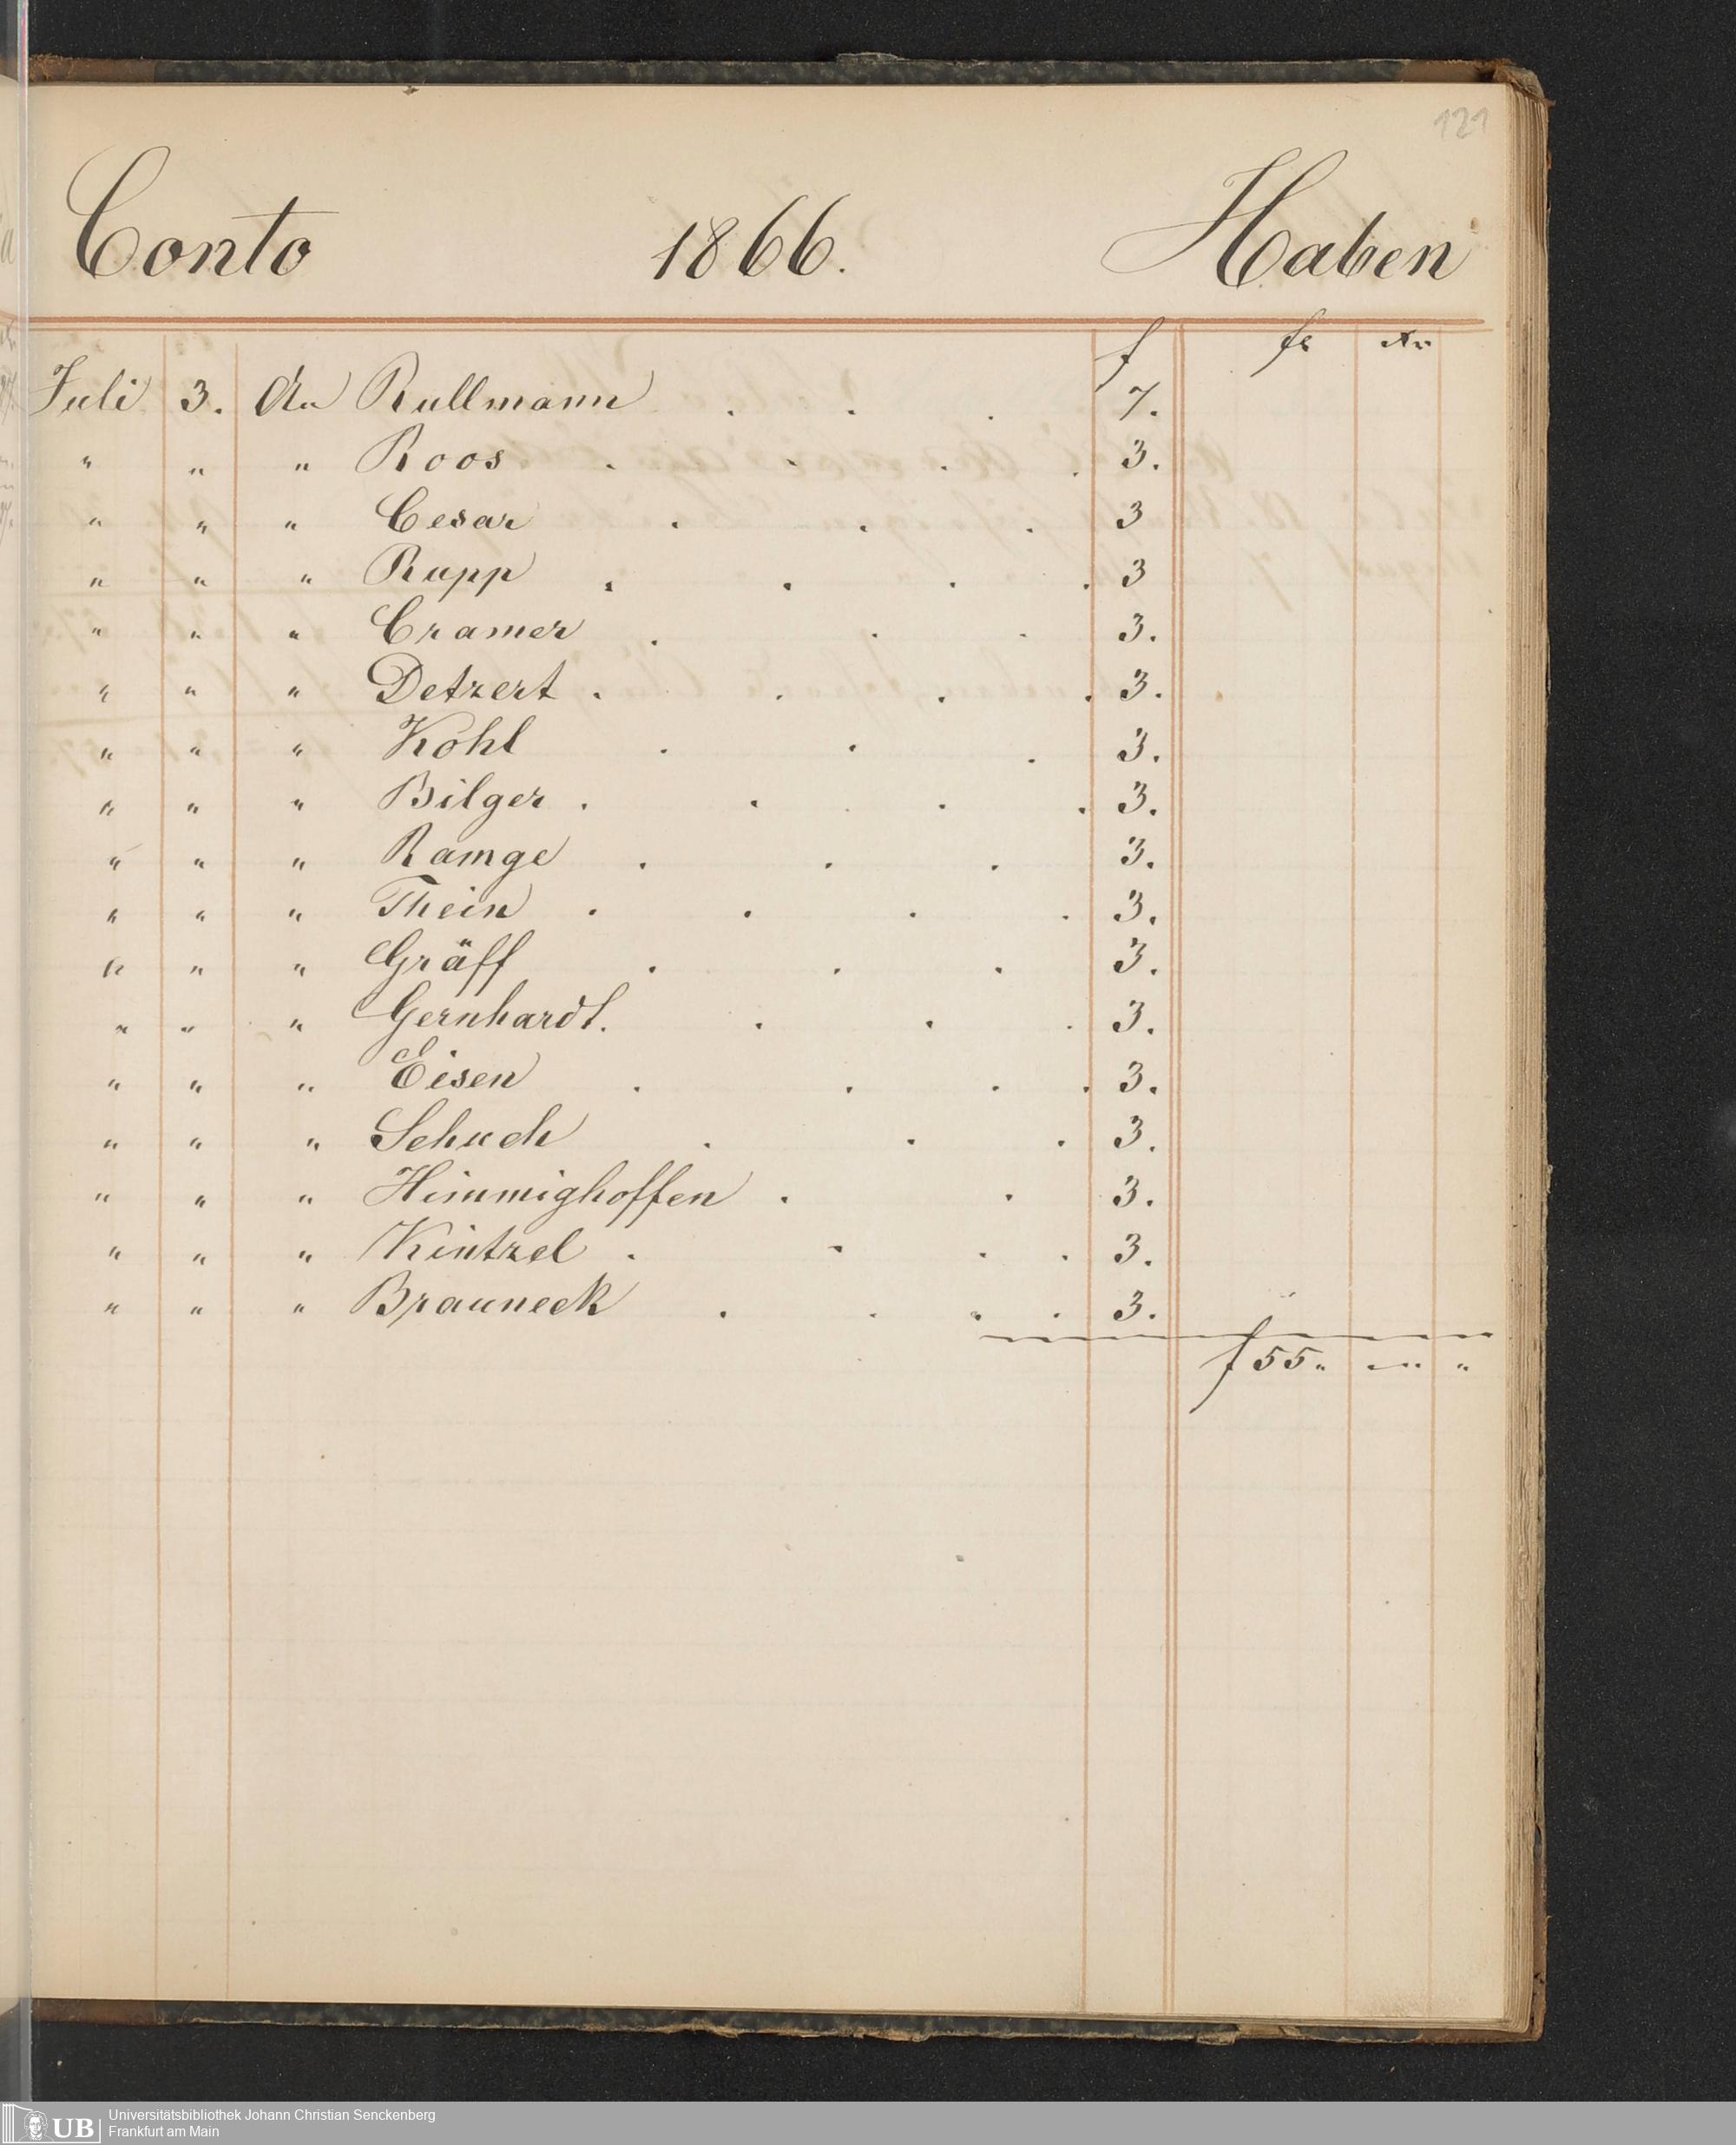 121
Conto 1866. Haben
f fl Xr
Juli 3. An Rullmann . . . 7.
" " " Roos . . . . 3.
" " " Cesar . . . 3
" " " Rupp . . . . 3
" " " Cramer . . . 3.
" " " Detzert . . . . 3.
" " " Kohl . . . 3.
" " " Bilger . . . . 3.
" " " Ramge . . . 3.
" " " Thein . . . . 3.
" " " Gräff . . . 3.
" " " Gernhardt. . . . 3.
" " " Eisen . . . . 3.
" " " Schuch . . . 3.
" " " Himmighoffen . . 3.
" " " Kintzel . . . . 3.
" " " Brauneck . . . . 3.
f 55 " — " "
UB Universitätsbibliothek Johann Christian Senckenberg
Frankfurt am Main